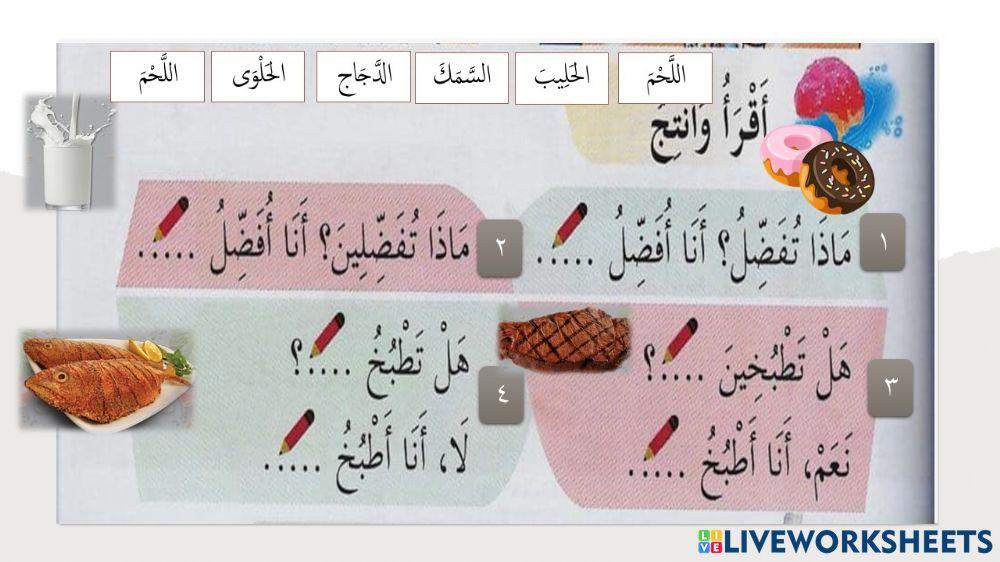 اللَّحْمَ
الحَلِيبَ
السَّمَكَ
الدَّجَاج
الحَلْوَى
اللَّحْمَ
أَقْرَأُ وَأَنتِجُ
١
مَاذَا تُفَضِّلُ؟ أَنَا أُفَضِّلُ .....
٢
مَاذَا تُفَضِّلِينَ؟ أَنَا أُفَضِّلُ .....
٣
هَلْ تَطْبُخِينَ .....؟
نَعَمْ، أَنَا أَطْبُخُ .....
٤
هَلْ تَطْبُخُ .....؟
لَا، أَنَا أَطْبُخُ .....
LIVEWORKSHEETS